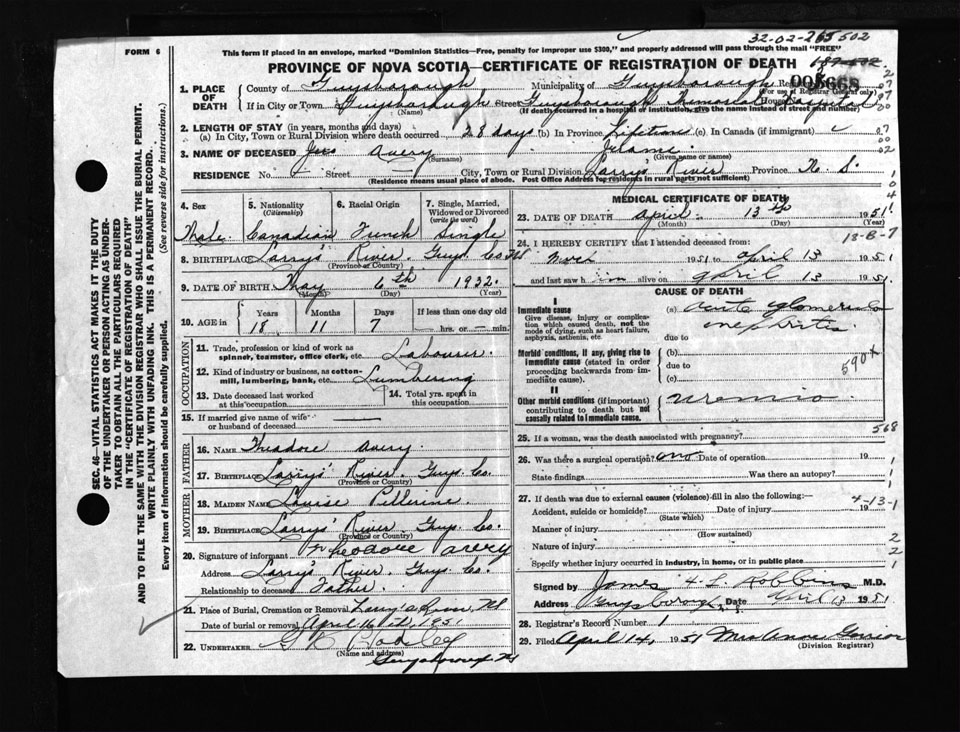 32-02-265502
FORM 6
This form if placed in an envelope, marked "Dominion Statistics—Free, penalty for improper use $300," and properly addressed will pass through the mail "FREE"
PROVINCE OF NOVA SCOTIA—CERTIFICATE OF REGISTRATION OF DEATH
005668
1. PLACE OF DEATH
County of Guysborough Municipality of Guysborough
(For use of Registrar General only)
If in City or Town Guysborough Street Guysborough Memorial Hospital House No.
(Name) (If death occurred in a hospital or institution, give the name instead of street and number)
2. LENGTH OF STAY (in years, months and days)
(a) In City, Town or Rural Division where death occurred 28 days (b) In Province Lifetime (c) In Canada (if immigrant)
3. NAME OF DECEASED Avery
(Surname) (Given name or names)
RESIDENCE No. — Street — City, Town or Rural Division Larry's River Province N. S.
(Residence means usual place of abode. Post Office Address for residents in rural parts not sufficient)
4. Sex 5. Nationality (Citizenship) 6. Racial Origin 7. Single, Married, Widowed or Divorced (write the word)
Male Canadian French Single
8. BIRTHPLACE Larry's River. Guys. Co. NS
(Province or Country)
9. DATE OF BIRTH May 6th 1932.
(Month) (Day) (Year)
10. AGE in Years Months Days If less than one day old
18 11 7 — hrs. or — min.
OCCUPATION
11. Trade, profession or kind of work as spinner, teamster, office clerk, etc. Labourer.
12. Kind of industry or business, as cotton-mill, lumbering, bank, etc. Lumbering
13. Date deceased last worked at this occupation
14. Total yrs. spent in this occupation
15. If married give name of wife or husband of deceased —
FATHER
16. NAME Theadore Avery.
17. BIRTHPLACE Larrys' River. Guys. Co.
(Province or Country)
MOTHER
18. MAIDEN NAME Louise Pellerine.
19. BIRTHPLACE Larrys' River. Guys. Co.
(Province or Country)
20. Signature of informant Theodore Avery
Address Larry's River. Guys. Co.
Relationship to deceased Father.
21. Place of Burial, Cremation or Removal Larry's River, NS
Date of burial or removal April 16th, 1951
22. UNDERTAKER
(Name and address)
Guysborough NS
MEDICAL CERTIFICATE OF DEATH
23. DATE OF DEATH April 13th 1951
(Month) (Day)
13-B-7
24. I HEREBY CERTIFY that I attended deceased from:
1951 to April 13 1951
and last saw him alive on April 13 1951.
CAUSE OF DEATH
I
Immediate cause
Give disease, injury or complication which caused death, not the mode of dying, such as heart failure, asphyxia, asthenia, etc.
(a) acute glomerulo nephritis
due to
Morbid conditions, if any, giving rise to immediate cause (stated in order proceeding backwards from immediate cause).
(b)
due to
(c)
590x
II
Other morbid conditions (if important) contributing to death but not causally related to immediate cause.
uremia
568
25. If a woman, was the death associated with pregnancy?
26. Was there a surgical operation? no Date of operation 19
State findings Was there an autopsy?
27. If death was due to external causes (violence) fill in also the following:—
4-13-1
Accident, suicide or homicide? Date of injury 19
(State which)
Manner of injury
(How sustained)
Nature of injury
Specify whether injury occurred in industry, in home, or in public place
Signed by James H. L. Robbins M.D.
Address Guysborough Date April 13 1951
28. Registrar's Record Number 1
29. Filed April 14, 1951 Mrs Annie
(Division Registrar)
SEC. 46—VITAL STATISTICS ACT MAKES IT THE DUTY OF THE UNDERTAKER OR PERSON ACTING AS UNDERTAKER TO OBTAIN ALL THE PARTICULARS REQUIRED IN THE "CERTIFICATE OF REGISTRATION OF DEATH" AND TO FILE THE SAME WITH THE DIVISION REGISTRAR WHO SHALL ISSUE THE BURIAL PERMIT.
WRITE PLAINLY WITH UNFADING INK. THIS IS A PERMANENT RECORD.
Every item of information should be carefully supplied. (See reverse side for instructions.)